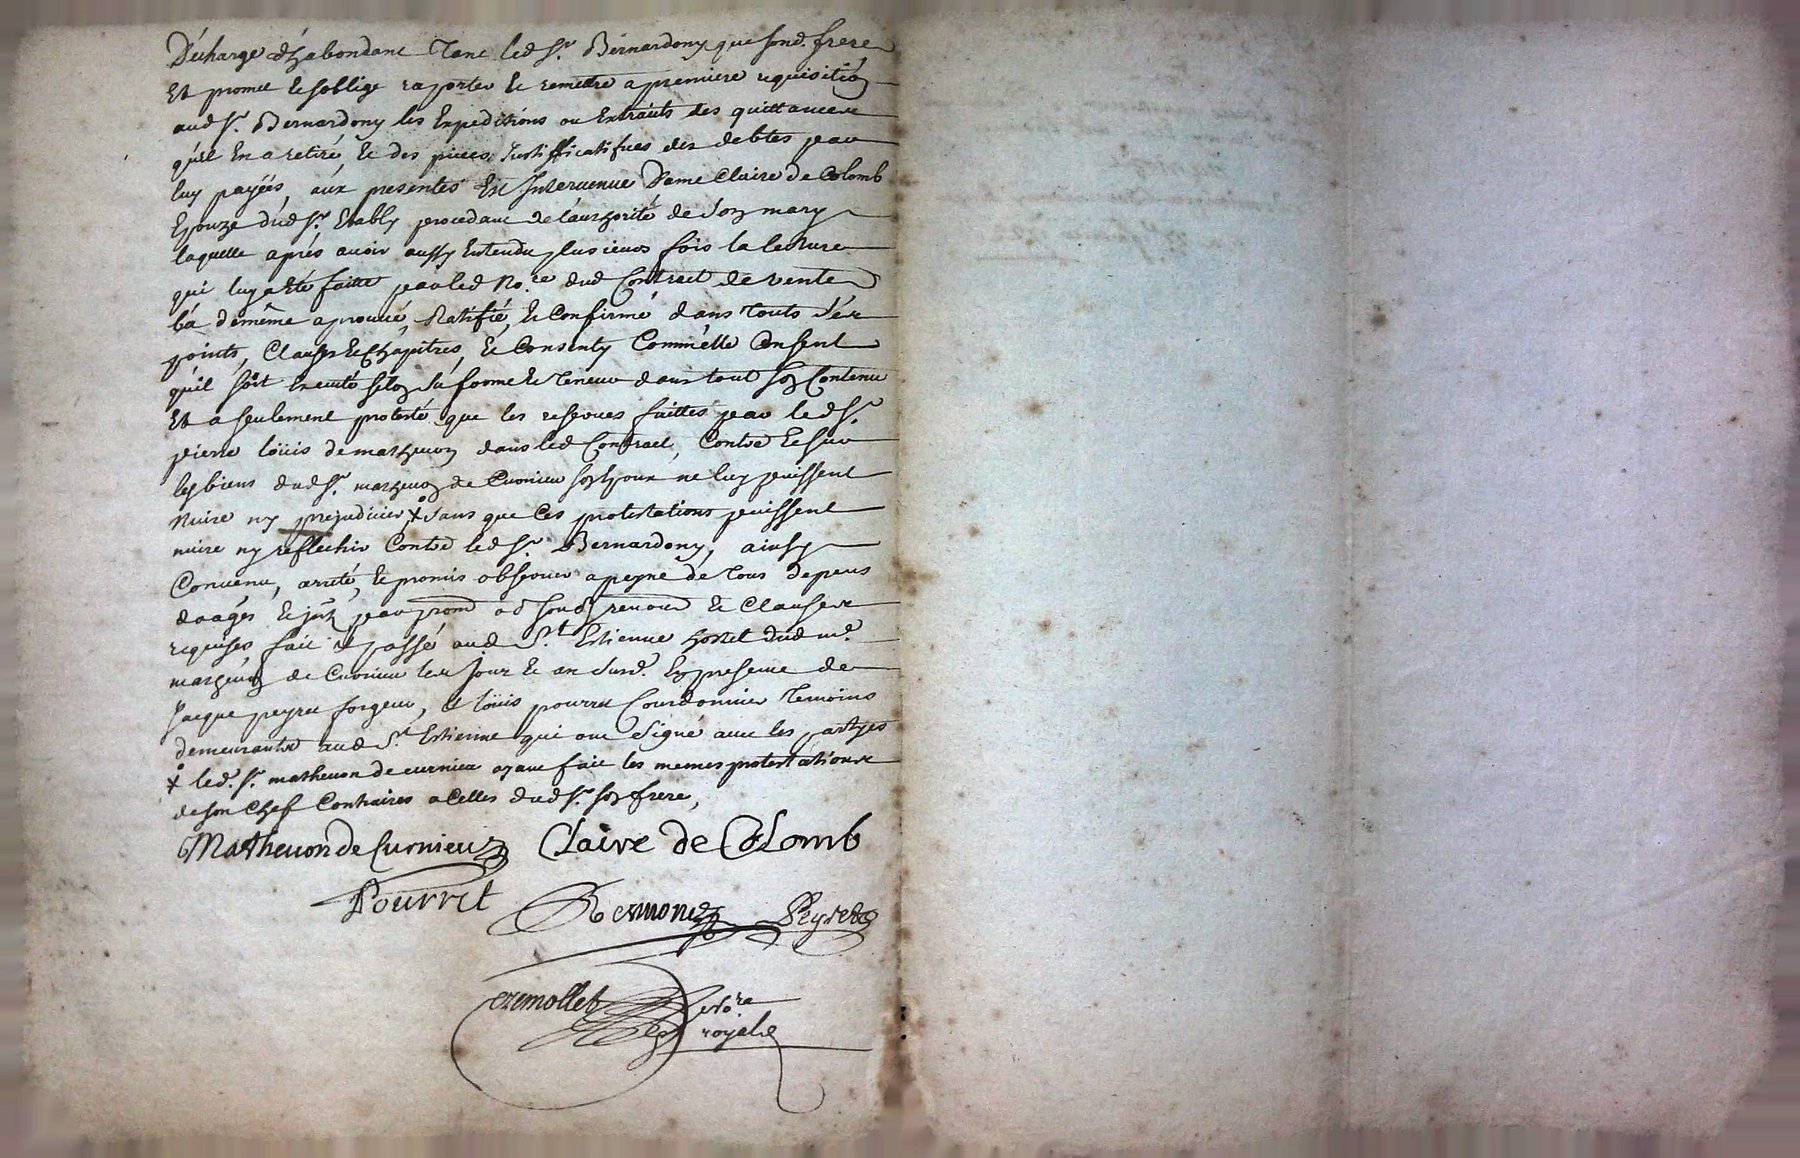 Décharge d'habondant tant led Sr. Bernardony que sond. frere
Et promet Et soblige raporter Et remettre a premiere requisition
aud Sr. Bernardony les Expeditions ou Extraits des quittances
qu'il En a retiré, Et des pieces Justifficatifves des debtes par
luy payées, aux presentes Est Intervenue Dame Claire de Colomb
Epouze dud Sr. Etably procedant de l'authorité de Son mary
laquelle aprés avoir aussy Entendu plusieurs fois la lecture
qui luy a Eté faitte par led No.re dud Contract de vente
la demême aprouvé, Ratifié, Et Confirmé dans touts Ses
points, Clauses Et Chapitres, Et Consenty Comm'elle Consent
qu'il soit Executé selon Sa forme Et Teneur dans tout son Contenu
Et a seulement protesté que les reserves faittes par led Sr.
pierre loüis de mathevon dans led Contract, Contre Et sur
les biens dud Sr. mathevon de Curnieu son Epoux ne luy puissent
Nuire ny prejudicier, x sans que Ces protestations puissent
nuire ny reflechir Contre led Sr. Bernardony, ainsy
Convenu, arreté, Et promis observer a peyne de tous depens
Et Clauses
requises fait Et passé aud St Estienne hostel dud me.
mathevon de Curnieu les Jour Et an Susd. En presence de
Jacque peyret forgeur, Et loüis pourret Courdonnier Temoins
demeurants aud St. Estienne qui ont Signé avec les partyes
x led. Sr. mathevon de curnieu ayant fait les memes protestations
de son Chef Contraires a Celles dud Sr. son frere,
Mathevon de Curnieu Claire de Colomb
Pourret Peyret
No.re
royal